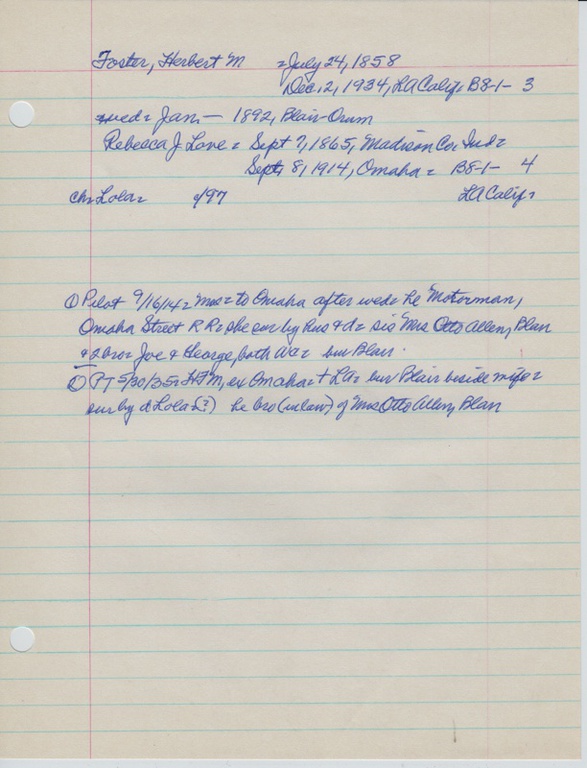 Foster, Herbert M = July 24, 1858
Dec. 2, 1934, LA Calif, B8-1- 3
wed = Jan. — 1892, Blair-Orum
Rebecca J Love = Sept 7, 1865, Madison Co. Ind =
Sept. 8, 1914, Omaha = B8-1- 4
ch = Lola = 97 LA Calif =
① Pilot 9/16/14 = Mrs = to Omaha after wed = he Motorman,
Omaha Street R R = she sur by hus & d = sis Mrs Otto Allen, Blair
& 2 bros Joe & George, both Wa = bur Blair.
② PT 5/30/35 = HFM, ex Omaha = + LA = bur Blair beside wife =
sur by d Lola (?) he bro (in law) of Mrs Otto Allen, Blair